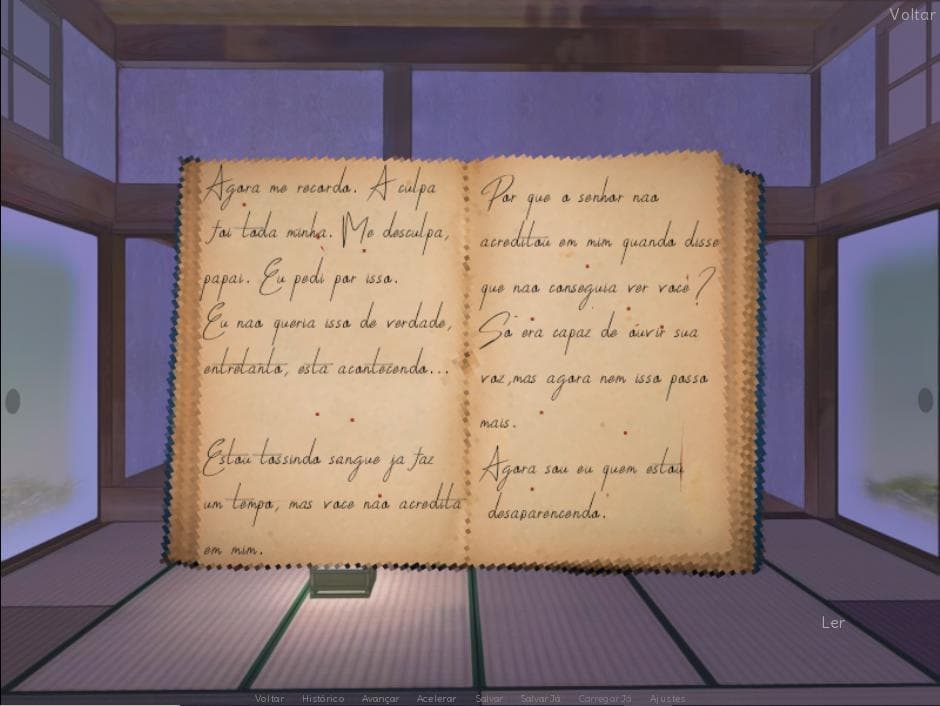 Voltar
Agora me recordo. A culpa
foi toda minha. Me desculpa,
papai. Eu pedi por isso.
Eu nao queria isso de verdade,
entretanto, esta acontecendo...
Estou tossindo sangue ja faz
um tempo, mas voce nao acredita
em mim.
Por que o senhor nao
acreditou em mim quando disse
que nao conseguia ver voce?
So era capaz de ouvir sua
voz,mas agora nem isso posso
mais.
Agora sou eu quem estou
desaparencendo.
Ler
Voltar Histórico Avançar Acelerar Salvar SalvarJá CarregarJá Ajustes